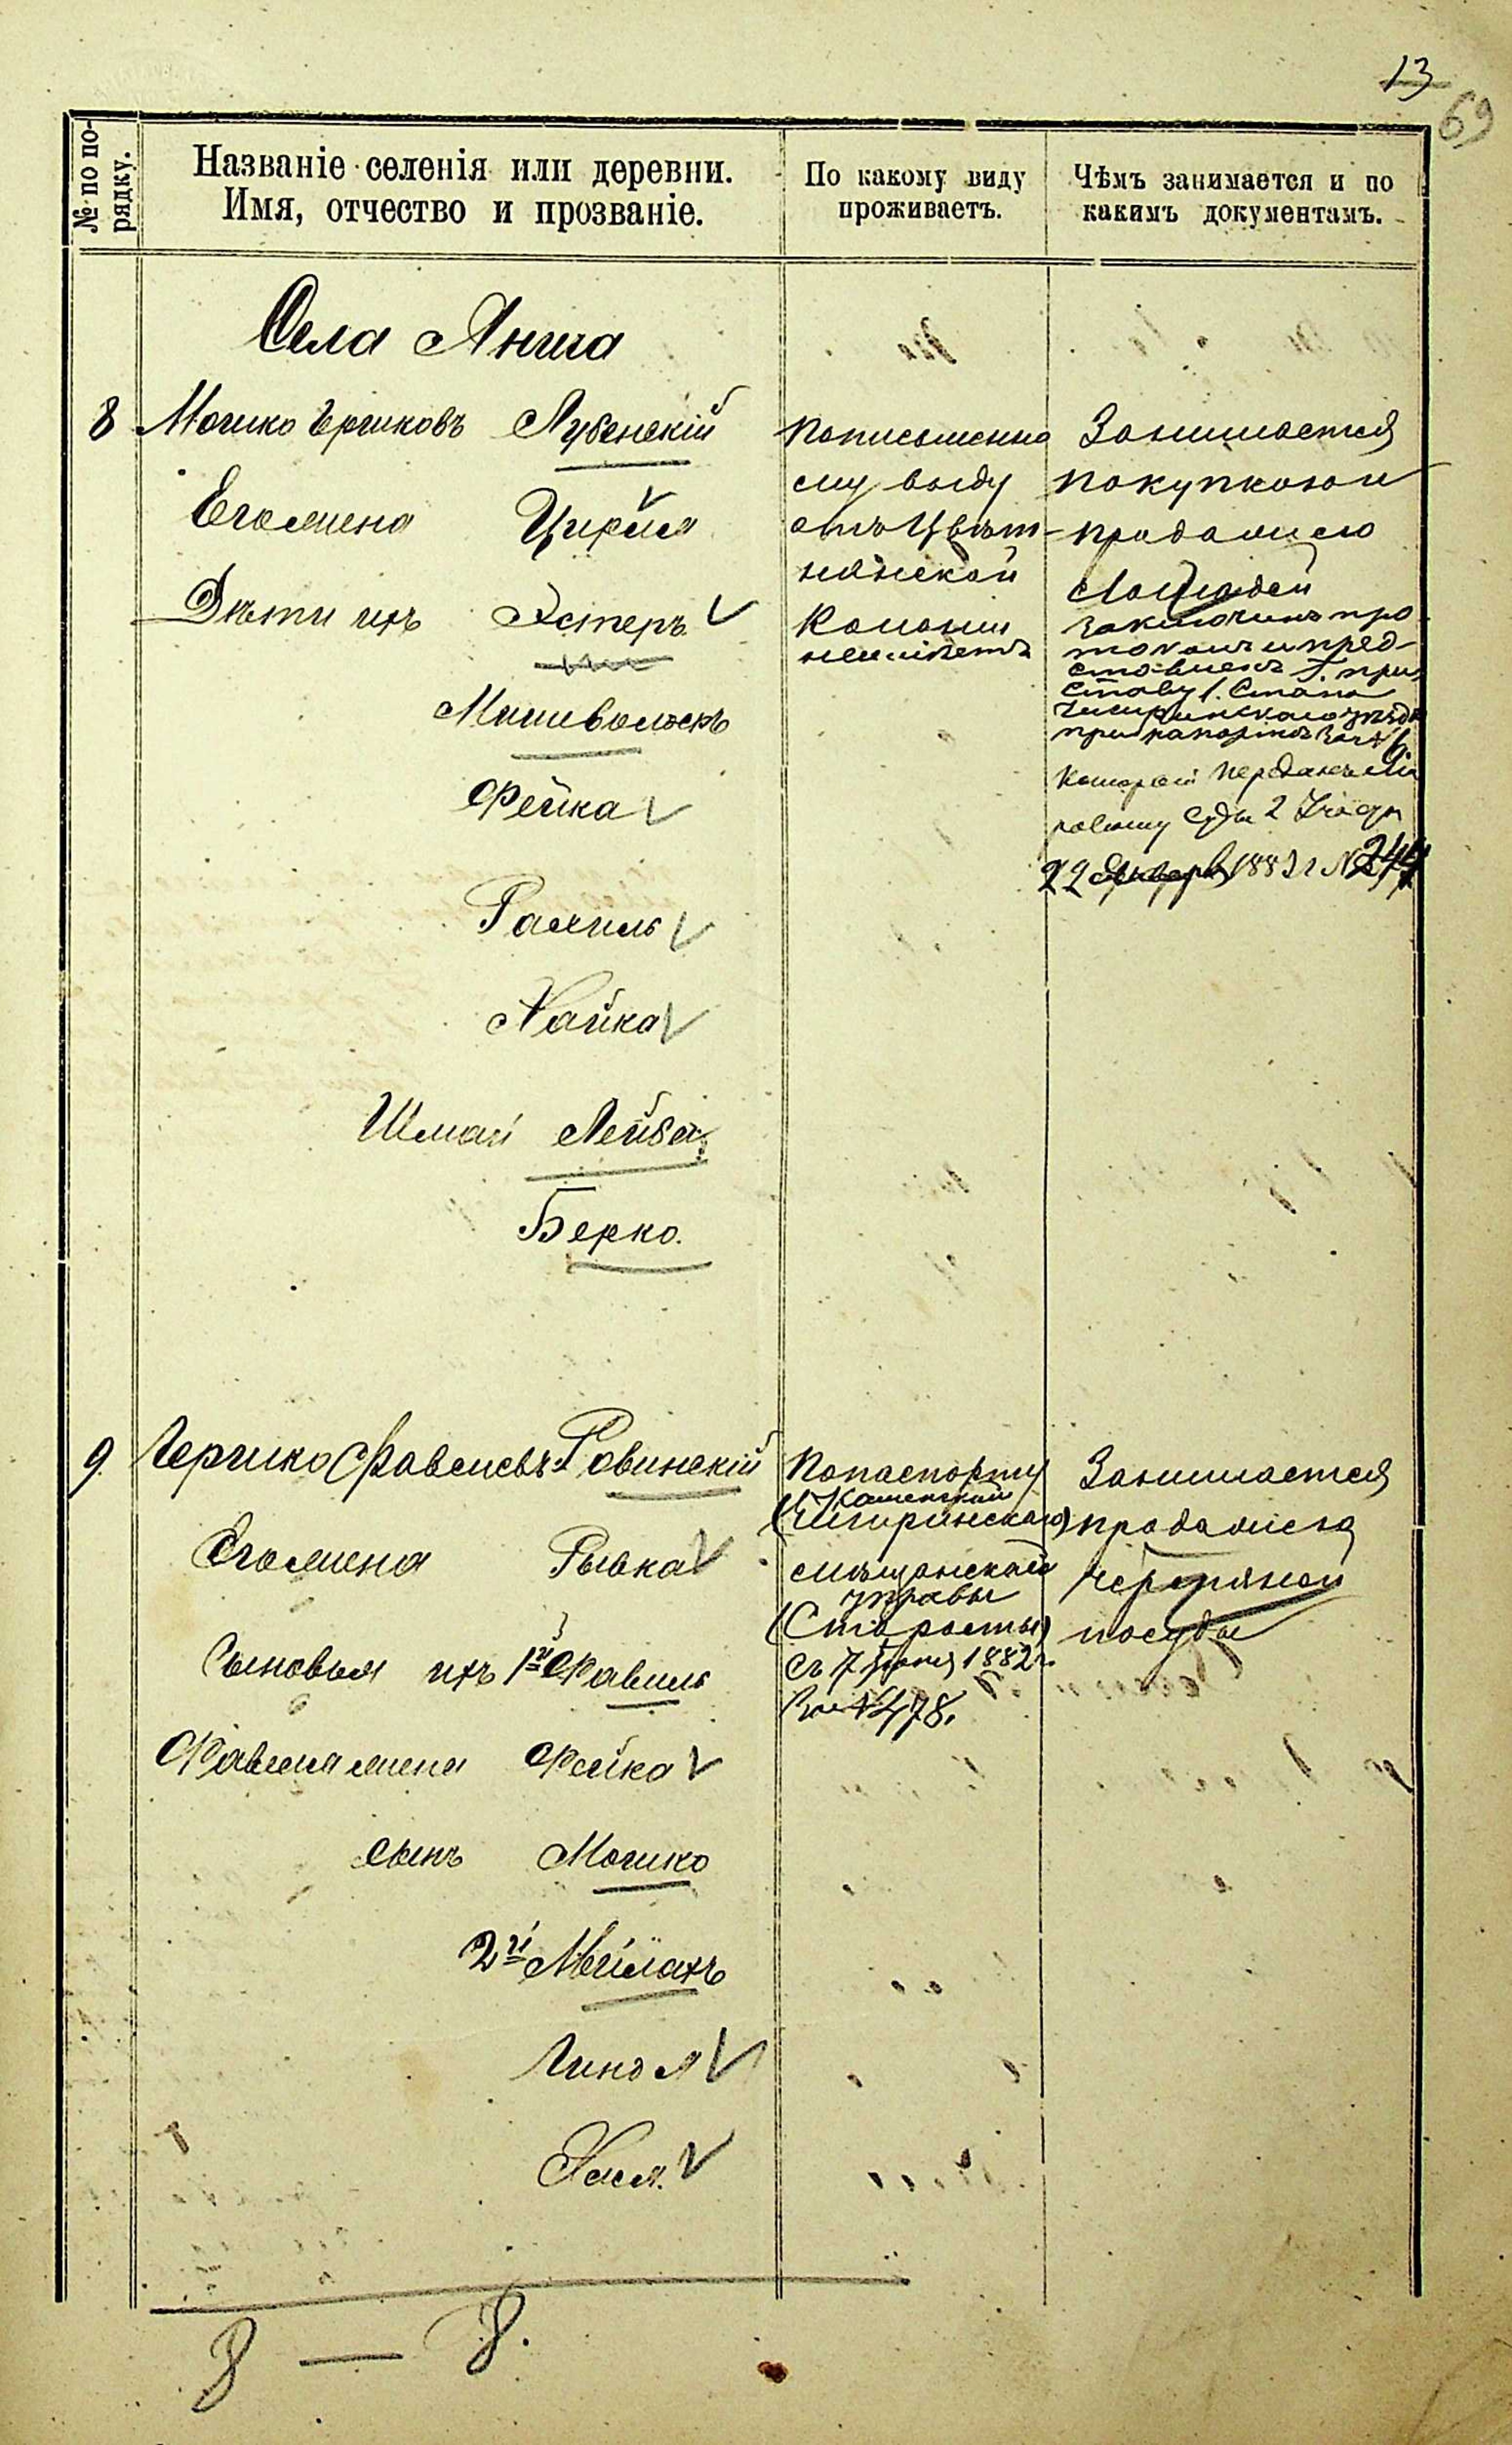 13
69
№ по по-
рядку.
Названіе селенія или деревни.
Имя, отчество и прозваніе.
По какому виду
проживаетъ.
Чѣмъ занимается и по
какимъ документамъ.
Села
8 Мошко Ершковъ Лубенскій
Его жена Цирля
Дѣти ихъ Эстеръ
Фейка
Рахиль
Хайка
Шмай Лейба
Берко.
Пописьменно
му виду
отъ Цвѣт-
нянской
Колоніи
неимѣетъ
Занимается
покупкою и
продажею
Лошадей
заключенъ про
токолъ и пред-
ставленъ Г. при
ставу 1. Стана
Чигиринского уѣзда
при рапортѣ за № 6
который переданъ Ми
ровому Судьи 2 Участ
22 Января 1883 г № 244
9. Гершко Фавелевъ Ровинскій
Его жена Рывка
Сыновья ихъ 1й Фавель
Фавеля жена Фейка
сынъ Мошко
2й Мейлахъ
Хася.
Попаспорту
Каменской
(Чигиринскаго)
мѣщанской
управы
(Старосты)
съ 7 Іюня 1882 г.
За № 478.
Занимается
продажею
черепяной
посуды
8 — 8.